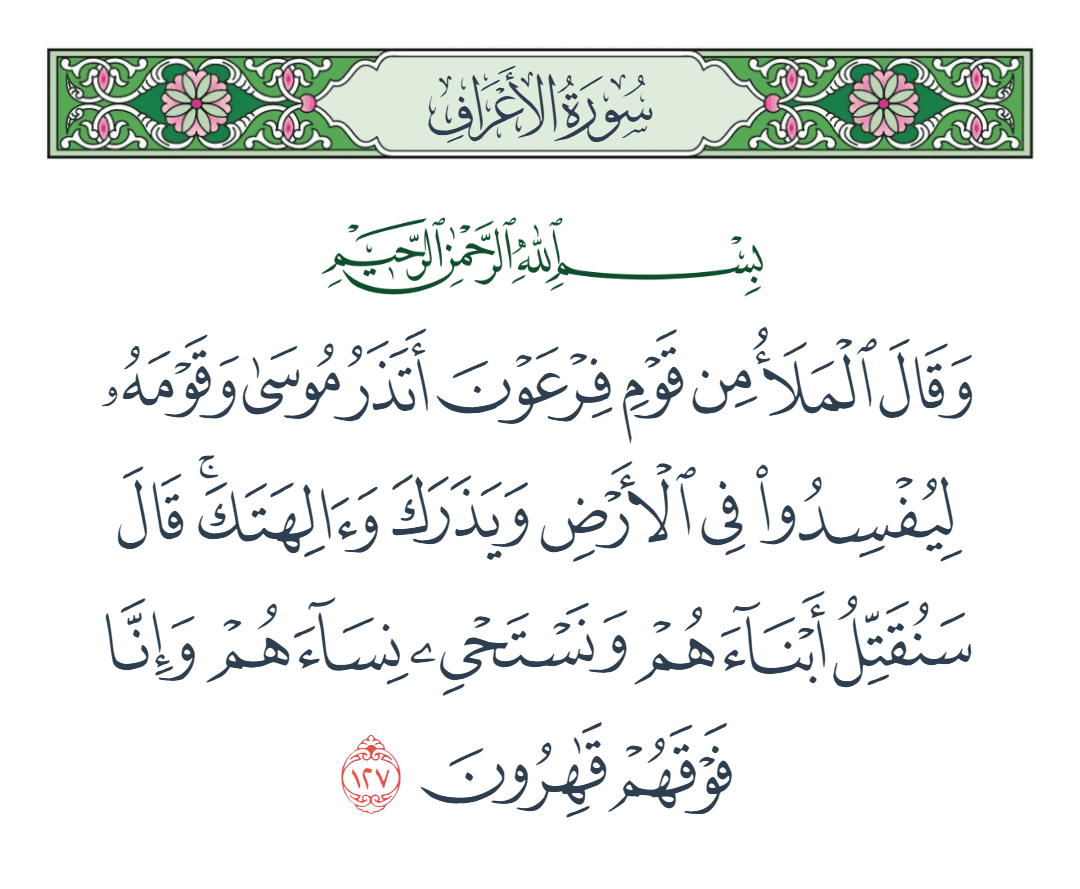 سُورَةُ الأَعْرَافِ
بِسْمِ ٱللَّهِ ٱلرَّحْمَٰنِ ٱلرَّحِيمِ
وَقَالَ ٱلْمَلَأُ مِن قَوْمِ فِرْعَوْنَ أَتَذَرُ مُوسَىٰ وَقَوْمَهُۥ
لِيُفْسِدُوا۟ فِى ٱلْأَرْضِ وَيَذَرَكَ وَءَالِهَتَكَ ۚ قَالَ
سَنُقَتِّلُ أَبْنَآءَهُمْ وَنَسْتَحْىِۦ نِسَآءَهُمْ وَإِنَّا
فَوْقَهُمْ قَٰهِرُونَ ١٢٧